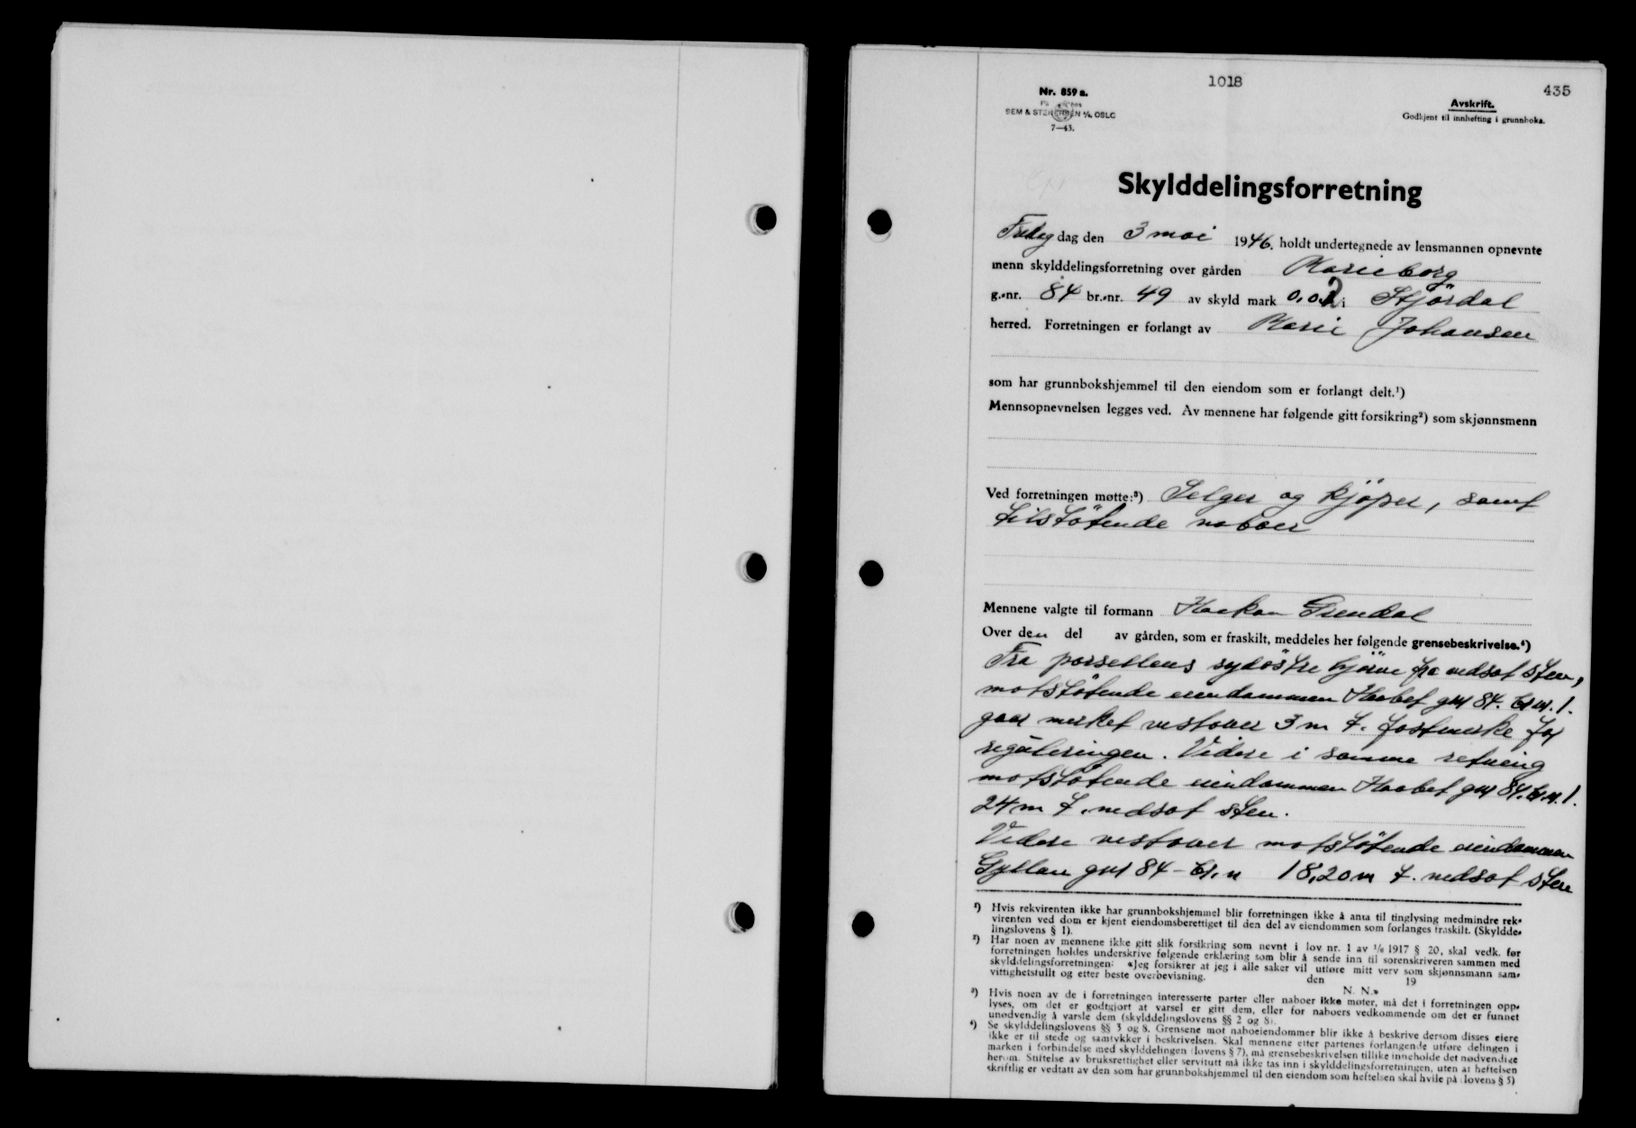 1018
435
Nr. 859 a.
Avskrift.
SEM & STENERSEN A/S, OSLO
Godkjent til innhefting i grunnboka.
7—43.
Skylddelingsforretning
Fredag dag den 3 mai 1946. holdt undertegnede av lensmannen opnevnte
menn skylddelingsforretning over gården Marieborg
g.-nr. 84 br.-nr. 49 av skyld mark 0,02 i Stjördal
herred. Forretningen er forlangt av Marie Johansen
som har grunnbokshjemmel til den eiendom som er forlangt delt.¹)
Mennsopnevnelsen legges ved. Av mennene har følgende gitt forsikring²) som skjønnsmenn
Ved forretningen møtte:³) Selger og kjöper, samt
tilstötende naboer
Mennene valgte til formann Haakon
Over den del av gården, som er fraskilt, meddeles her følgende grensebeskrivelse.⁴)
Fra parsellens sydöstre hjörne fra nedsat sten,
motstötende eiendommen Haabet gnr 84. br.nr. 1.
gaar merket vestover 3 m t. fastmerke for
reguleringen. Videre i samme retning
motstötende eiendommen Haabet gnr 84. br.nr. 1.
24 m t. nedsat sten.
Videre vestover motstötende eiendommen
gnr 84 – br. n 18,20 m t. nedsat sten
¹) Hvis rekvirenten ikke har grunnbokshjemmel blir forretningen ikke å anta til tinglysing medmindre rek-
virenten ved dom er kjent eiendomsberettiget til den del av eiendommen som forlanges fraskilt. (Skyldde-
lingslovens § 1).
²) Har noen av mennene ikke gitt slik forsikring som nevnt i lov nr. 1 av 1/6 1917 § 20, skal vedk. før
forretningen holdes underskrive følgende erklæring som blir å sende inn til sorenskriveren sammen med
skylddelingsforretningen: «Jeg forsikrer at jeg i alle saker vil utføre mitt verv som skjønnsmann sam-
vittighetsfullt og etter beste overbevisning. den 19
N. N.»
³) Hvis noen av de i forretningen interesserte parter eller naboer ikke møter, må det i forretningen opp-
lyses, om det er godtgjort at varsel er gitt dem, eller for naboers vedkommende om det er funnet
unødvendig å varsle dem (skylddelingslovens §§ 2 og 8).
⁴) Se skylddelingslovens §§ 3 og 8. Grensene mot naboeiendommer blir ikke å beskrive dersom disses eiere
ikke er til stede og samtykker i beskrivelsen. Skal mennene etter partenes forlangende utføre delingen i
marken i forbindelse med skylddelingen (lovens § 7), må grensebeskrivelsen tillike inneholde det nødvendige
herom. Stiftelse av bruksrettighet eller servitutt må ikke tas inn i skylddelingsforretningen, uten at heftelsen
skriftlig er vedtatt av den som har grunnbokshjemmel til den eiendom som heftelsen skal hvile på (lovens § 5)